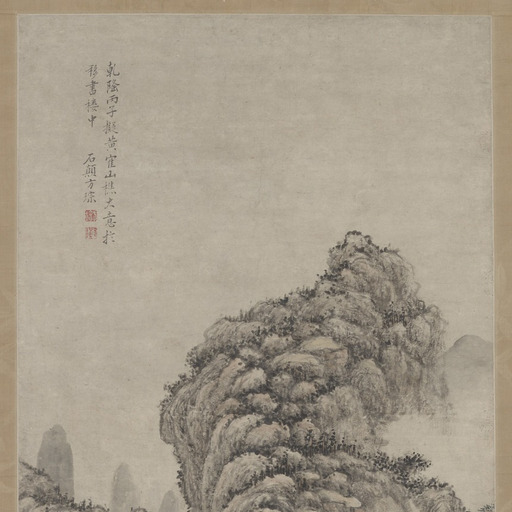 乾隆丙子擬黃雀山樵大意於
移書樓中　石顛方琮